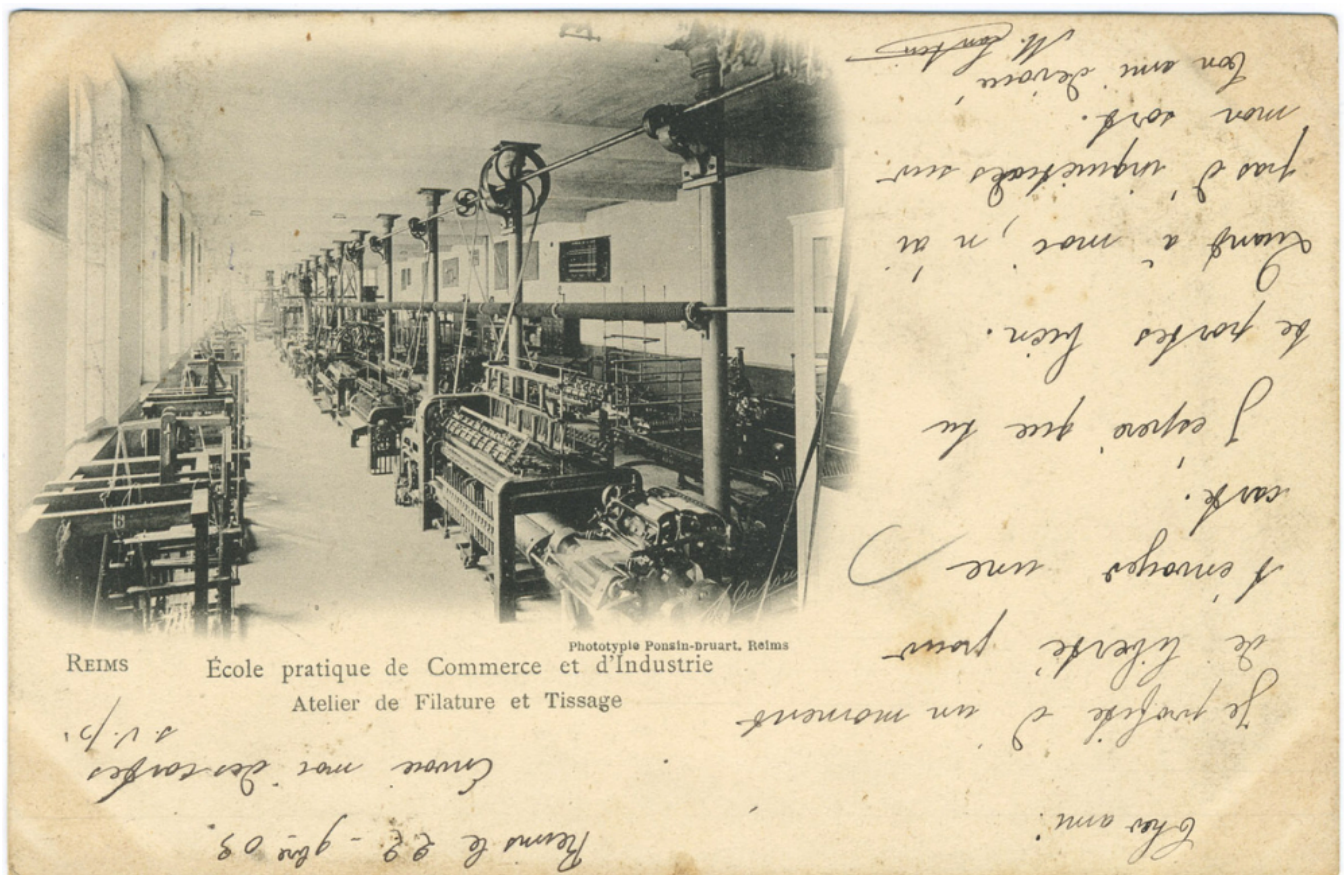 Phototypie Ponsin-Druart, Reims
REIMS École pratique de Commerce et d'Industrie
Atelier de Filature et Tissage
Reims le 22 - 9bre 03
Envoie moi des cartes
s.v.p.
Cher ami.
Je profite d'un moment
de liberté pour
t'envoyer une
carte.
J'éspère que tu
te portes bien.
Quant à moi, n'ai
pas d'inquiétudes sur
mon sort.
Ton ami dévoué
M.